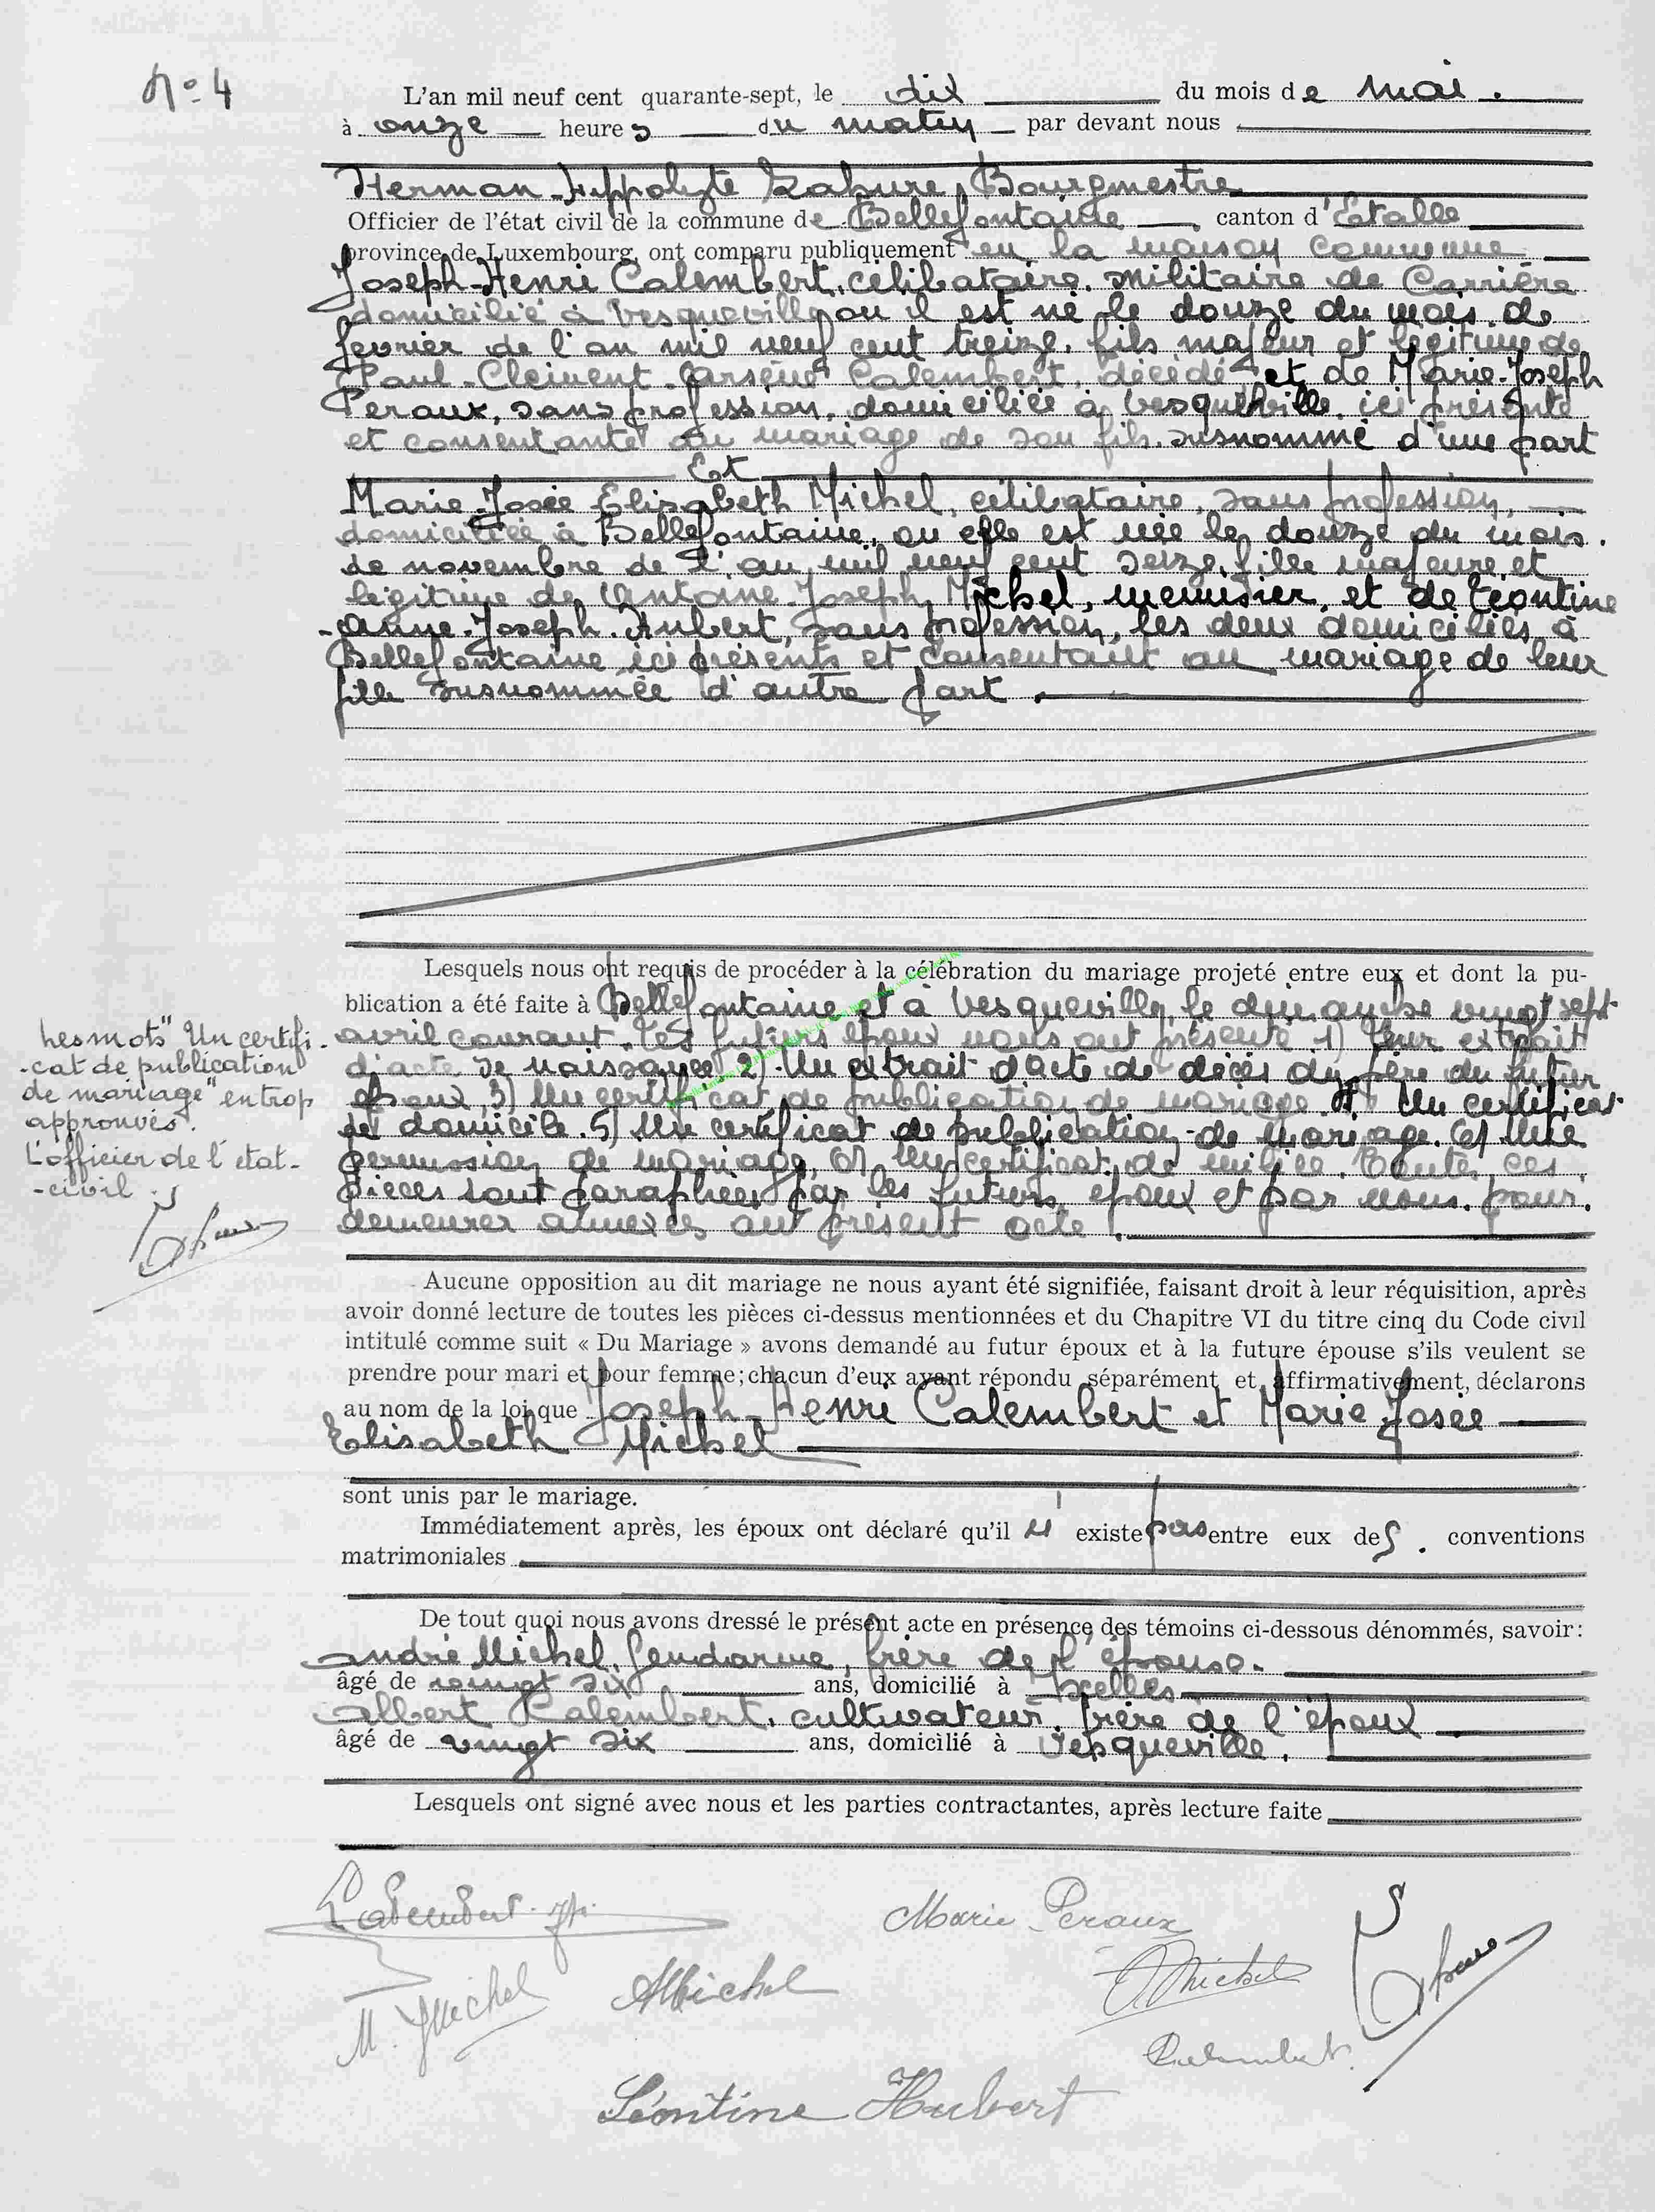 N° 4
L'an mil neuf cent quarante-sept, le dix du mois de Mai.
à onze heures du matin par devant nous
Herman-Hippolyte Bourgmestre
Officier de l'état civil de la commune de Bellefontaine, canton d'Etalle
province de Luxembourg, ont comparu publiquement en la maison Commune
Joseph-Henri Calembert, célibataire, Militaire de Carrière
domicilié à Vesqueville où il est né le douze du mois de
février de l'an mil neuf cent treize, fils majeur et légitime de
Paul-Clément-Arsène Calembert, décédé et de Marie-Joseph
Peraux, sans profession, domiciliée à Vesqueville, ici présente
et consentante au mariage de son fils susnommé d'une part
Et
Marie-Josée Elisabeth Michel, célibataire, sans profession,
domiciliée à Bellefontaine, où elle est née le douze du mois
de novembre de l'an mil neuf cent seize, fille majeure et
légitime de Antoine-Joseph Michel, menuisier, et de Léontine
-Anne-Joseph Hubert, sans profession, les deux domiciliés à
Bellefontaine ici présents et consentant au mariage de leur
fille susnommée d'autre part.
Lesquels nous ont requis de procéder à la célébration du mariage projeté entre eux et dont la pu-
blication a été faite à Bellefontaine et à Vesqueville le dimanche vingt sept
avril courant. Les futurs époux nous ont présenté 1) leur extrait
d'acte de naissance 2) Un extrait d'acte de décès du père du futur
époux 3) Un certificat de publication de mariage. 4) Un certificat
de domicile. 5) Un certificat de publication de mariage. 6) Une
permission de mariage, Un certificat de milice. Toutes ces
pièces sont paraphées par les futurs époux et par nous pour
demeurer annexées au présent acte.
Les mots "Un certifi-
-cat de publication
de mariage" en trop
approuvés.
L'officier de l'état-
-civil
Aucune opposition au dit mariage ne nous ayant été signifiée, faisant droit à leur réquisition, après
avoir donné lecture de toutes les pièces ci-dessus mentionnées et du Chapitre VI du titre cinq du Code civil
intitulé comme suit « Du Mariage » avons demandé au futur époux et à la future épouse s'ils veulent se
prendre pour mari et pour femme; chacun d'eux ayant répondu séparément et affirmativement, déclarons
au nom de la loi que Joseph-Henri Calembert et Marie Josée
Elisabeth Michel
sont unis par le mariage.
Immédiatement après, les époux ont déclaré qu'il n'existe pas entre eux des conventions
matrimoniales
De tout quoi nous avons dressé le présent acte en présence des témoins ci-dessous dénommés, savoir:
André Michel, Gendarme, frère de l'épouse.
âgé de vingt six ans, domicilié à Ixelles
Albert Calembert, cultivateur, frère de l'époux
âgé de vingt six ans, domicilié à Vesqueville.
Lesquels ont signé avec nous et les parties contractantes, après lecture faite
Calembert Jh. Marie Peraux
M. J. Michel AMichel Michel
Calembert
Léontine Hubert